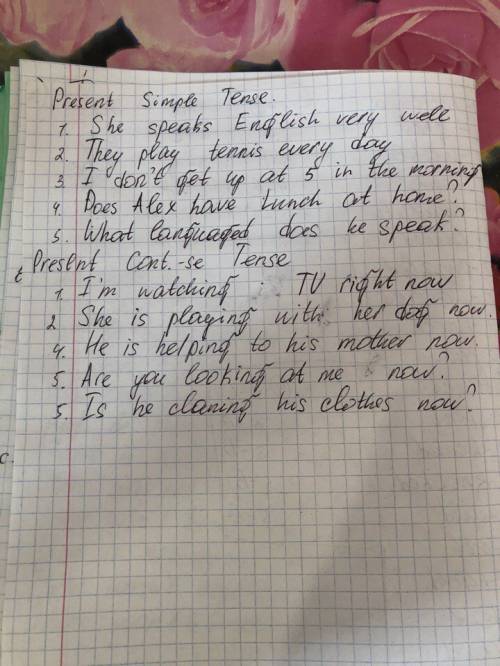 Present Simple Tense.
1. She speaks English very well
2. They play tennis every day
3. I don't get up at 5 in the morning
4. Does Alex have Lunch at home?
5. What languaged does he speak?
Present Cont.-se Tense
1. I'm watching TV right now
2 She is playing with her dog now.
4. He is helping to his mother now.
5. Are you looking at me now?
5. Is he claning his clothes now?